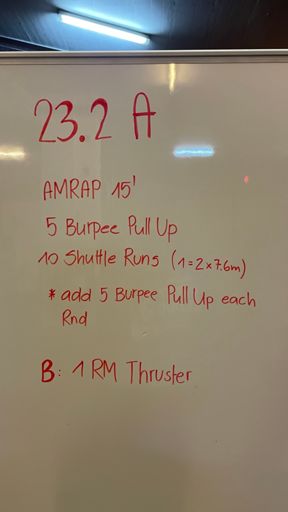 23.2 A
AMRAP 15'
5 Burpee Pull Up
10 Shuttle Runs (1=2x7.6m)
* add 5 Burpee Pull Up each
Rnd
B: 1 RM Thruster